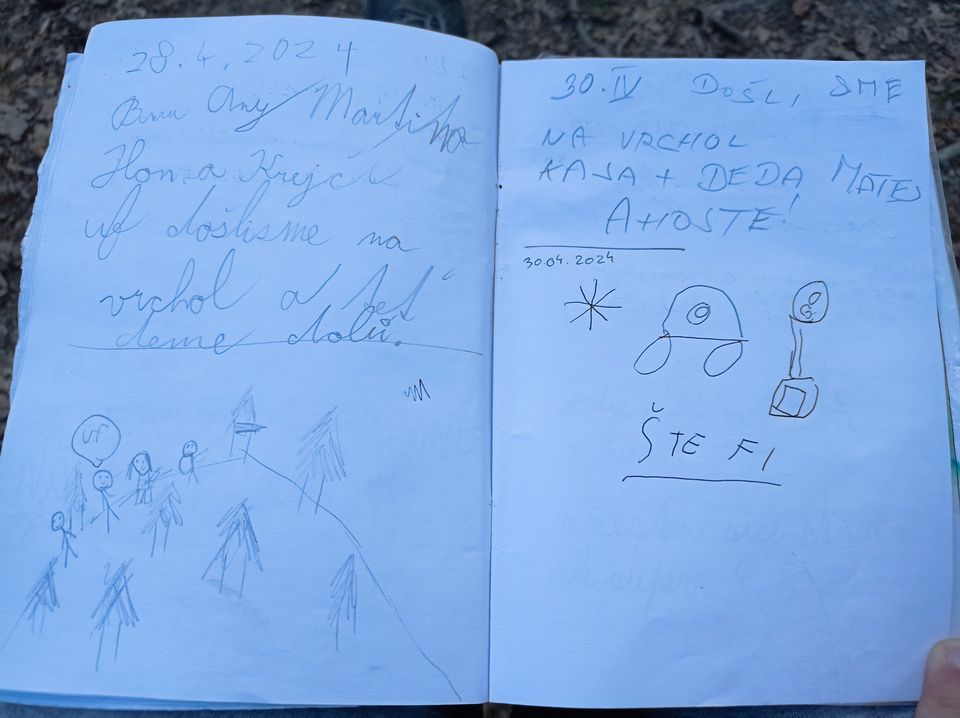 28.4.2024
Any Martina
Honza Krejčí
uf došlisme na
vrchol a teť
deme dolů.
uf
30.IV DOŠLI SME
NA VRCHOL
KAJA + DĚDA MATEJ
AHOJTE!
30.04.2024
ŠTEFI